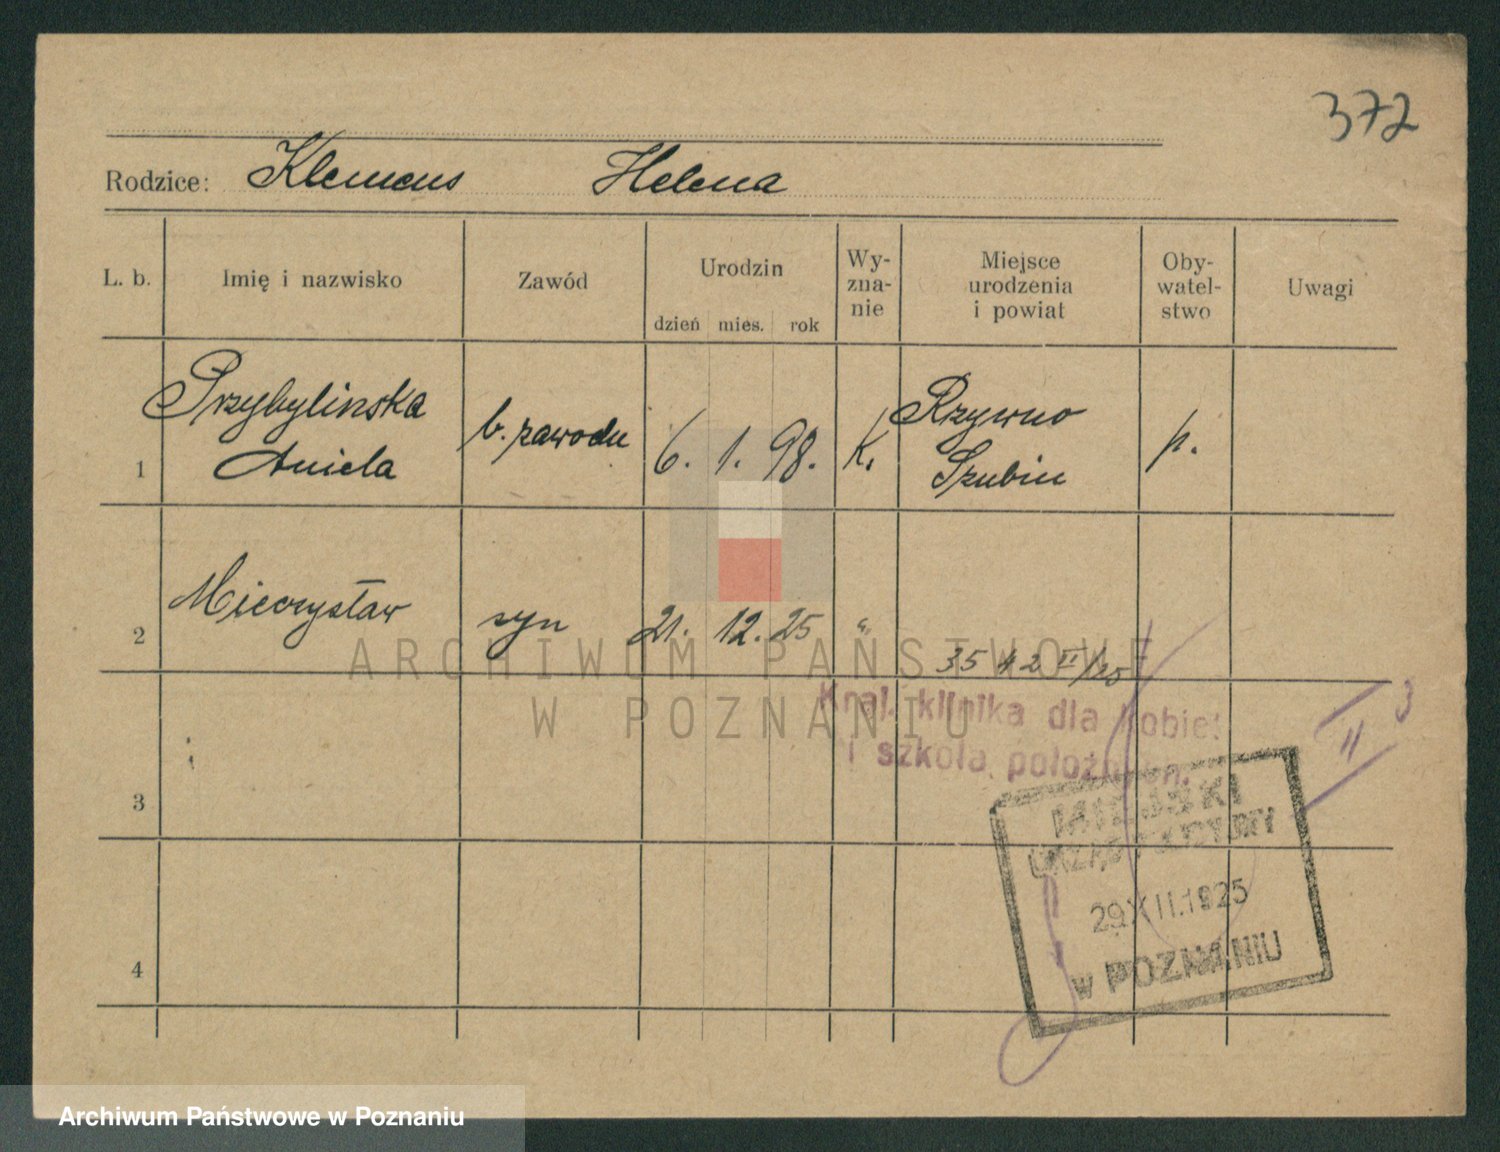 372
Rodzice: Klemens Helena
L. b. Imię i nazwisko Zawód Urodzin dzień mies. rok Wy-zna-nie Miejsce urodzenia i powiat Oby-watel-stwo Uwagi
Przybylinska b. zawodu 6. 1. 98. K. Rzywno p.
1 Aniela Szubin
2 Mieczysław syn 21. 12. 25 "
35 42 II/25
ARCHIWUM PAŃSTWOWE
W POZNANIU
Kraj. klinika dla kobiet
i szkoła położn
II 3
3
MIEJSKI
URZĄD
29 XII. 1925
w POZNANIU
4
Archiwum Państwowe w Poznaniu